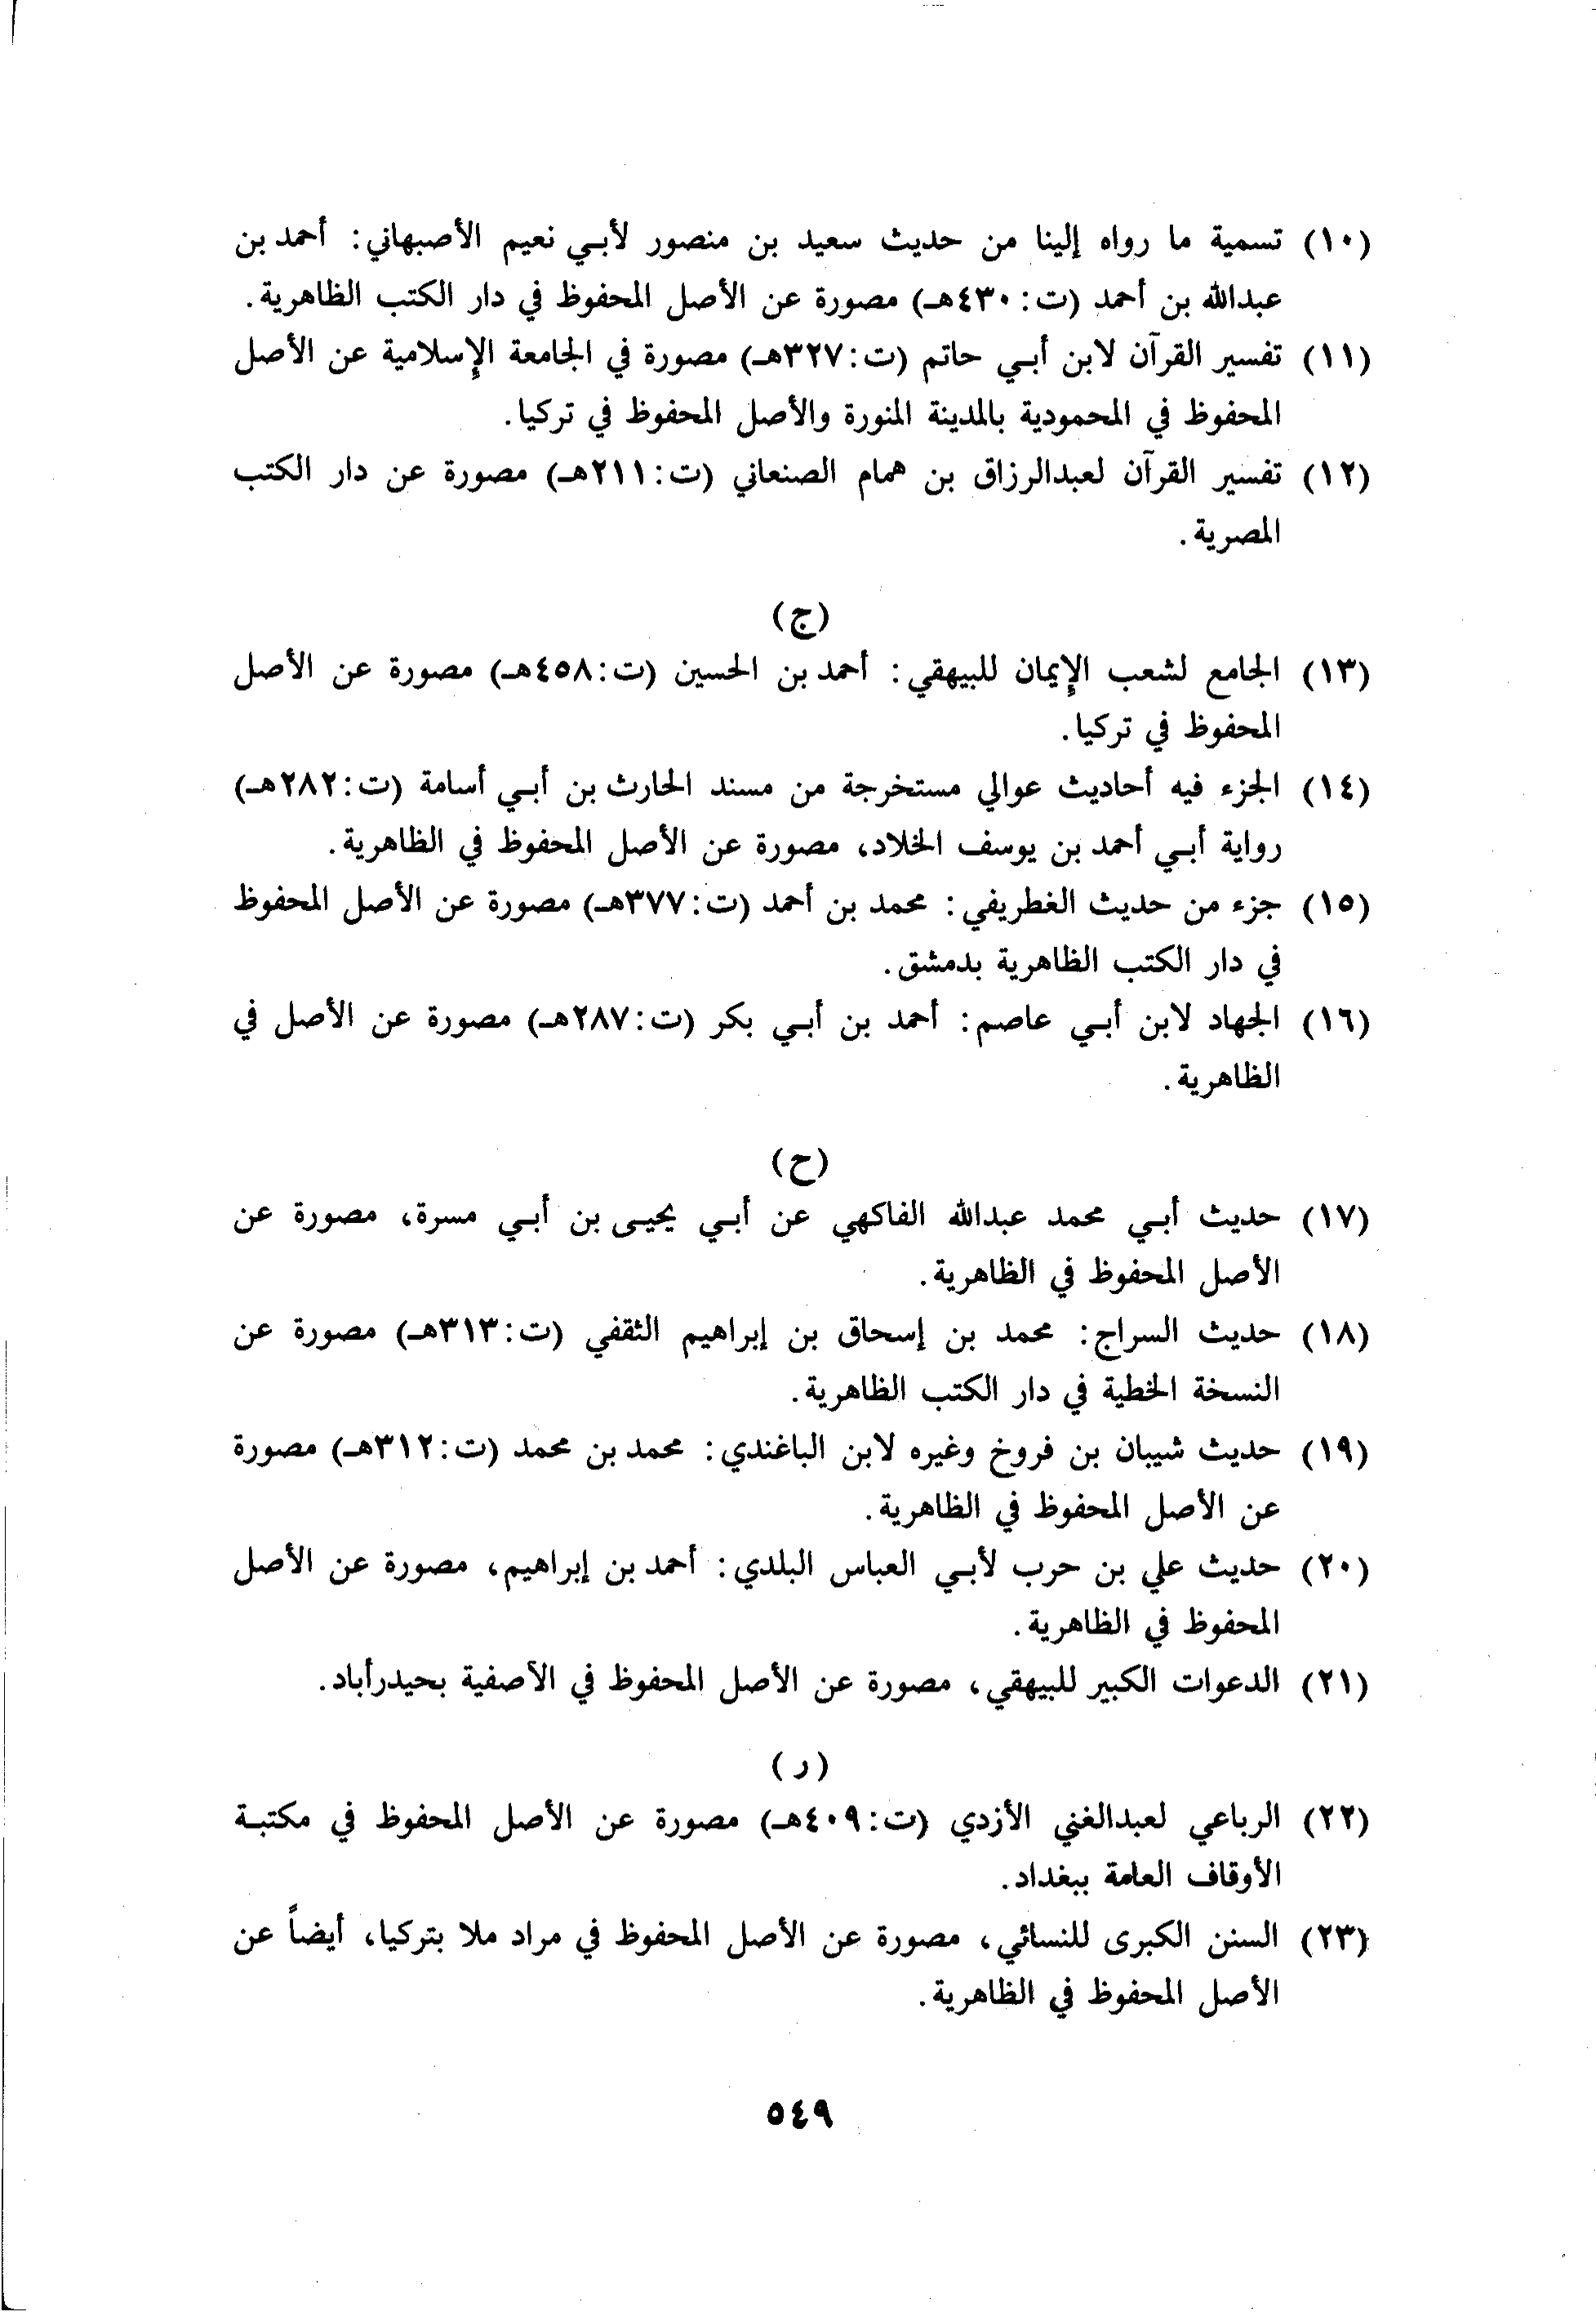 (١٠) تسمية ما رواه إلينا من حديث سعيد بن منصور لأبي نعيم الأصبهاني: أحمد بن
عبدالله بن أحمد (ت: ٤٣٠هـ) مصورة عن الأصل المحفوظ في دار الكتب الظاهرية.
(١١) تفسير القرآن لابن أبي حاتم (ت: ٣٢٧هـ) مصورة في الجامعة الإسلامية عن الأصل
المحفوظ في المحمودية بالمدينة المنورة والأصل المحفوظ في تركيا.
(١٢) تفسير القرآن لعبدالرزاق بن همام الصنعاني (ت: ٢١١هـ) مصورة عن دار الكتب
المصرية.
(ج)
(١٣) الجامع لشعب الإيمان للبيهقي: أحمد بن الحسين (ت: ٤٥٨هـ) مصورة عن الأصل
المحفوظ في تركيا.
(١٤) الجزء فيه أحاديث عوالي مستخرجة من مسند الحارث بن أبي أسامة (ت: ٢٨٢هـ)
رواية أبي أحمد بن يوسف الخلاد، مصورة عن الأصل المحفوظ في الظاهرية.
(١٥) جزء من حديث الغطريفي: محمد بن أحمد (ت: ٣٧٧هـ) مصورة عن الأصل المحفوظ
في دار الكتب الظاهرية بدمشق.
(١٦) الجهاد لابن أبي عاصم: أحمد بن أبي بكر (ت: ٢٨٧هـ) مصورة عن الأصل في
الظاهرية.
(ح)
(١٧) حديث أبي محمد عبدالله الفاكهي عن أبي يحيى بن أبي مسرة، مصورة عن
الأصل المحفوظ في الظاهرية.
(١٨) حديث السراج: محمد بن إسحاق بن إبراهيم الثقفي (ت: ٣١٣هـ) مصورة عن
النسخة الخطية في دار الكتب الظاهرية.
(١٩) حديث شيبان بن فروخ وغيره لابن الباغندي: محمد بن محمد (ت: ٣١٢هـ) مصورة
عن الأصل المحفوظ في الظاهرية.
(٢٠) حديث علي بن حرب لأبي العباس البلدي: أحمد بن إبراهيم، مصورة عن الأصل
المحفوظ في الظاهرية.
(٢١) الدعوات الكبير للبيهقي، مصورة عن الأصل المحفوظ في الآصفية بحيدرأباد.
(ر)
(٢٢) الرباعي لعبدالغني الأزدي (ت: ٤٠٩هـ) مصورة عن الأصل المحفوظ في مكتبة
الأوقاف العامة ببغداد.
(٢٣) السنن الكبرى للنسائي، مصورة عن الأصل المحفوظ في مراد ملا بتركيا، أيضاً عن
الأصل المحفوظ في الظاهرية.
٥٤٩